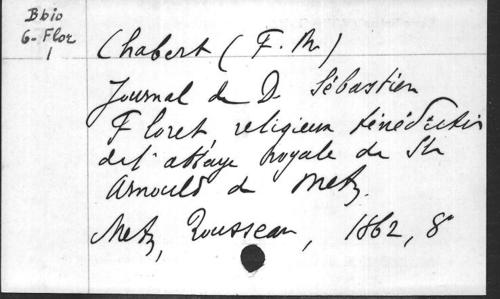 Bbio
6-Flor
1
Chabert (F. M.)
Journal de D Sébastien
Floret religieux bénédictin
de l'abbaye royale de St
Arnould de Metz.
Metz, Rousseau, 1862, 8°